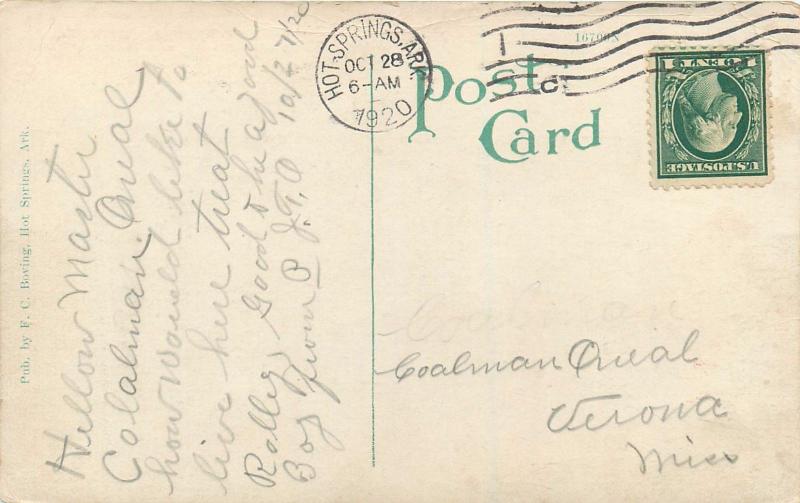 Hellow Master
Colalman Oneal
how Would like to
live here treat
Ralley Good & be a good
Boy from P J.T.O 10/27/20
Pub. by F. C. Boving, Hot Springs, Ark.
HOT SPRINGS, ARK.
OCT 28
6-AM
1920
16709N
Post Card
U.S. POSTAGE
1 CENT 1
Coalman
Coalman Oneal
Verona
Miss